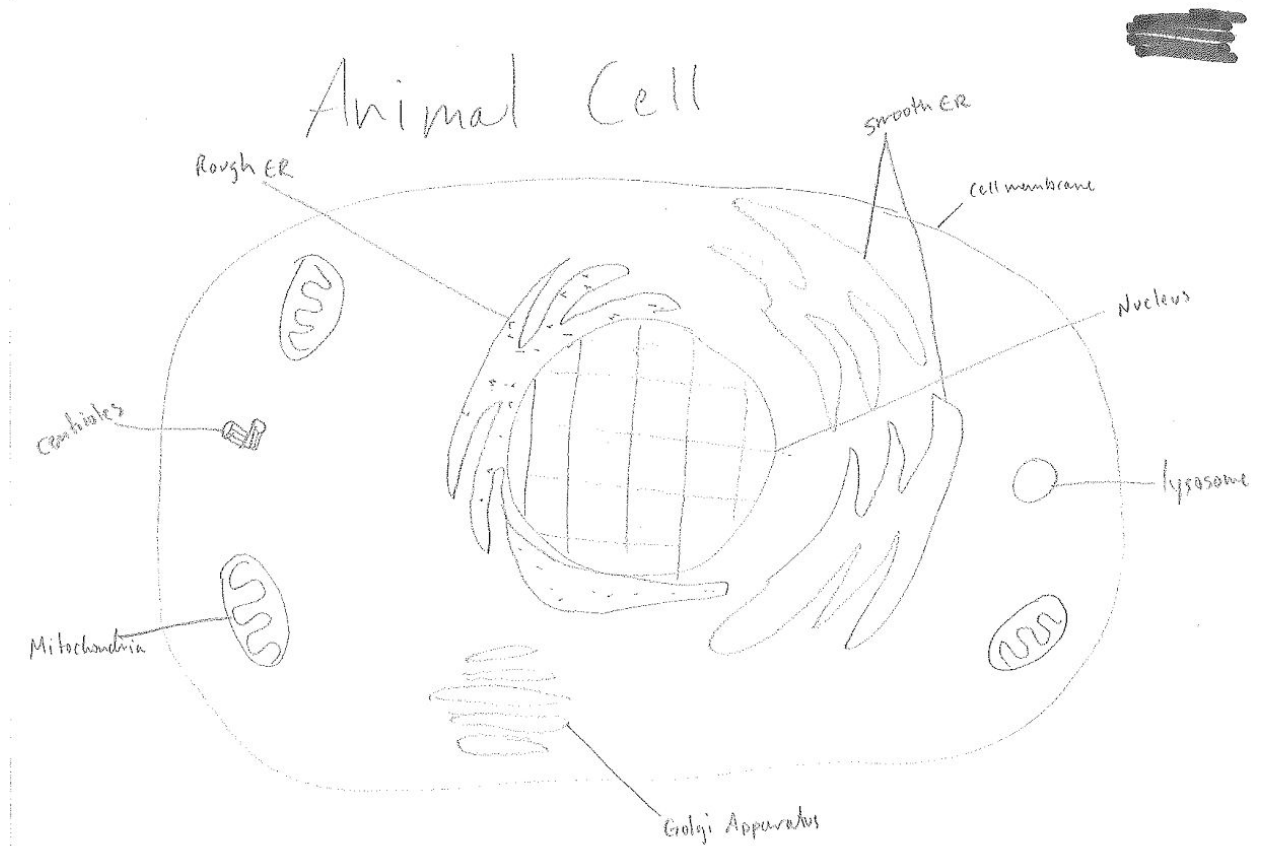 Animal Cell
smooth ER
Rough ER
Cell membrane
Nucleus
Centrioles
lysosome
Mitochondria
Golgi Apparatus